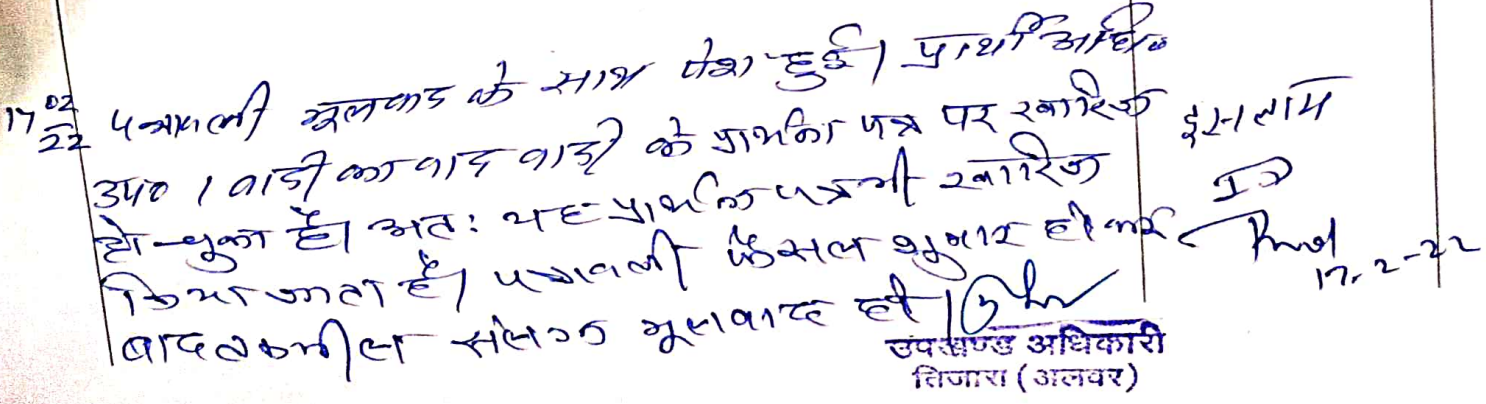 17/02/22 पत्रावली मूलवाद के साथ पेश हुई। प्रार्थी अधि०
उप०। वादी का वाद वादी के प्रार्थना पत्र पर खारिज
हो चुका है। अतः यह प्रार्थना पत्र भी खारिज
किया जाता है। पत्रावली फैसल शुमार होकर
बाद तकमील संलग्न मूलवाद हो।
उपखण्ड अधिकारी
तिजारा (अलवर)
इस्लाम
17-2-22